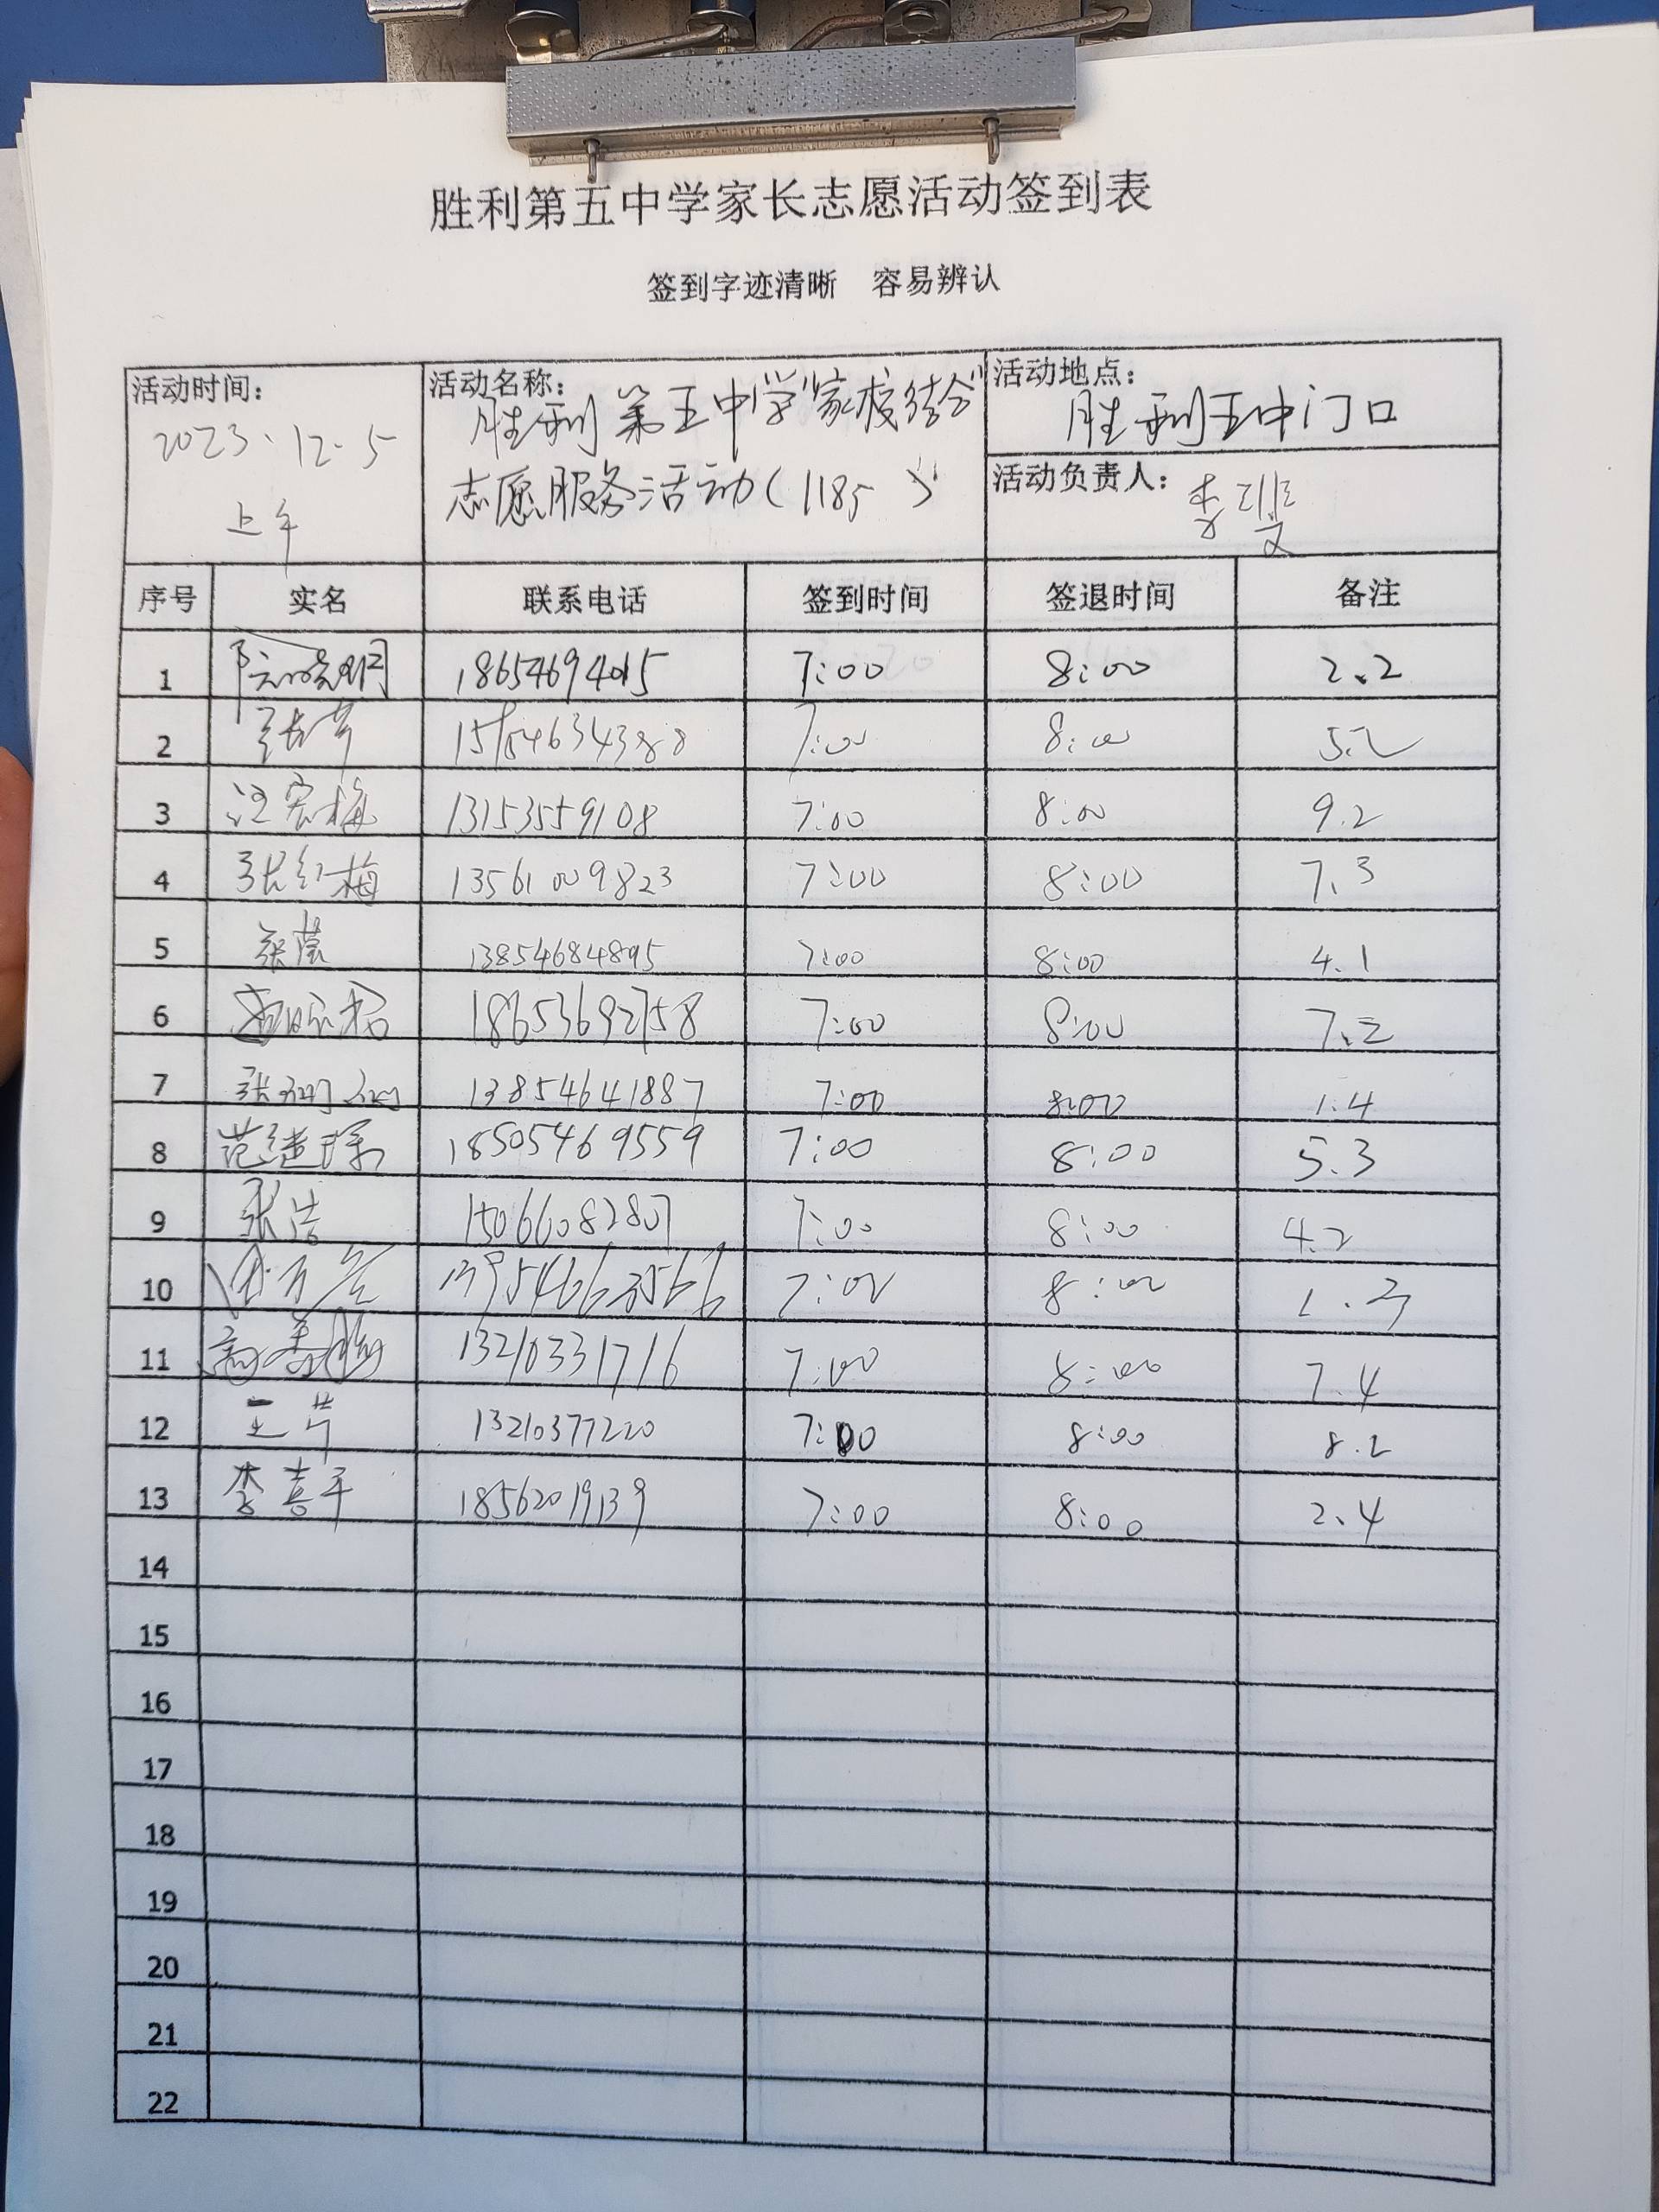 胜利第五中学家长志愿活动签到表
签到字迹清晰 容易辨认
活动时间: 2023.12.5 上午
活动名称: 胜利第五中学"家校结合"志愿服务活动(1185)
活动地点: 胜利五中门口
活动负责人: 李
序号 实名 联系电话 签到时间 签退时间 备注
1 晓明 18654694015 7:00 8:00 2.2
2 张芳 15154634388 7:00 8:00 5.2
3 汪宏梅 13153559108 7:00 8:00 9.2
4 张红梅 13561009823 7:00 8:00 7.3
5 张莹 13854684895 7:00 8:00 4.1
6 18653692758 7:00 8:00 7.2
7 张 13854641887 7:00 8:00 1.4
8 范 18505469559 7:00 8:00 5.3
9 张洁 15066082807 7:00 8:00 4.2
10 7:00 8:00 1.3
11 高 13210331716 7:00 8:00 7.4
12 王芳 13210377220 7:00 8:00 8.2
13 李喜平 18562019139 7:00 8:00 2.4
14
15
16
17
18
19
20
21
22